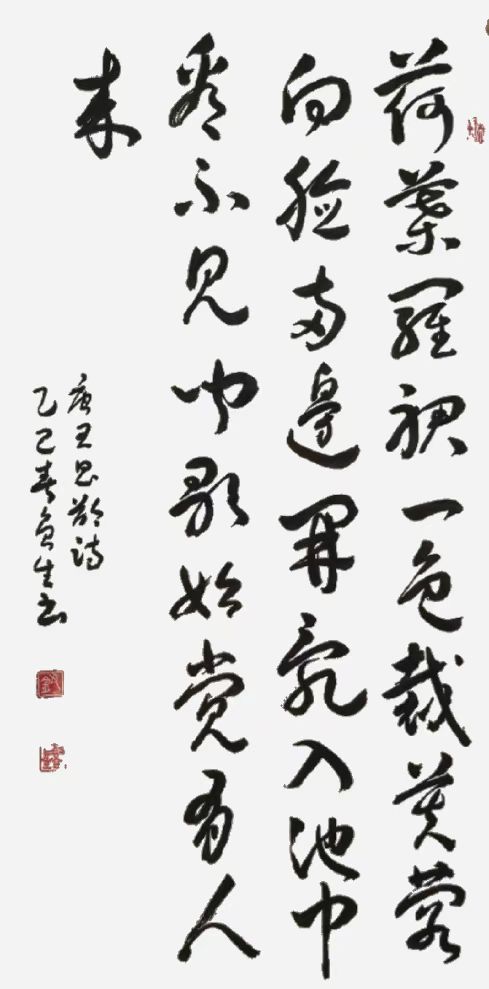 荷葉羅裙一色裁芙蓉
向臉兩邊開亂入池中
看不見聞歌始覺有人
來
唐王昌齡詩
乙巳春生書